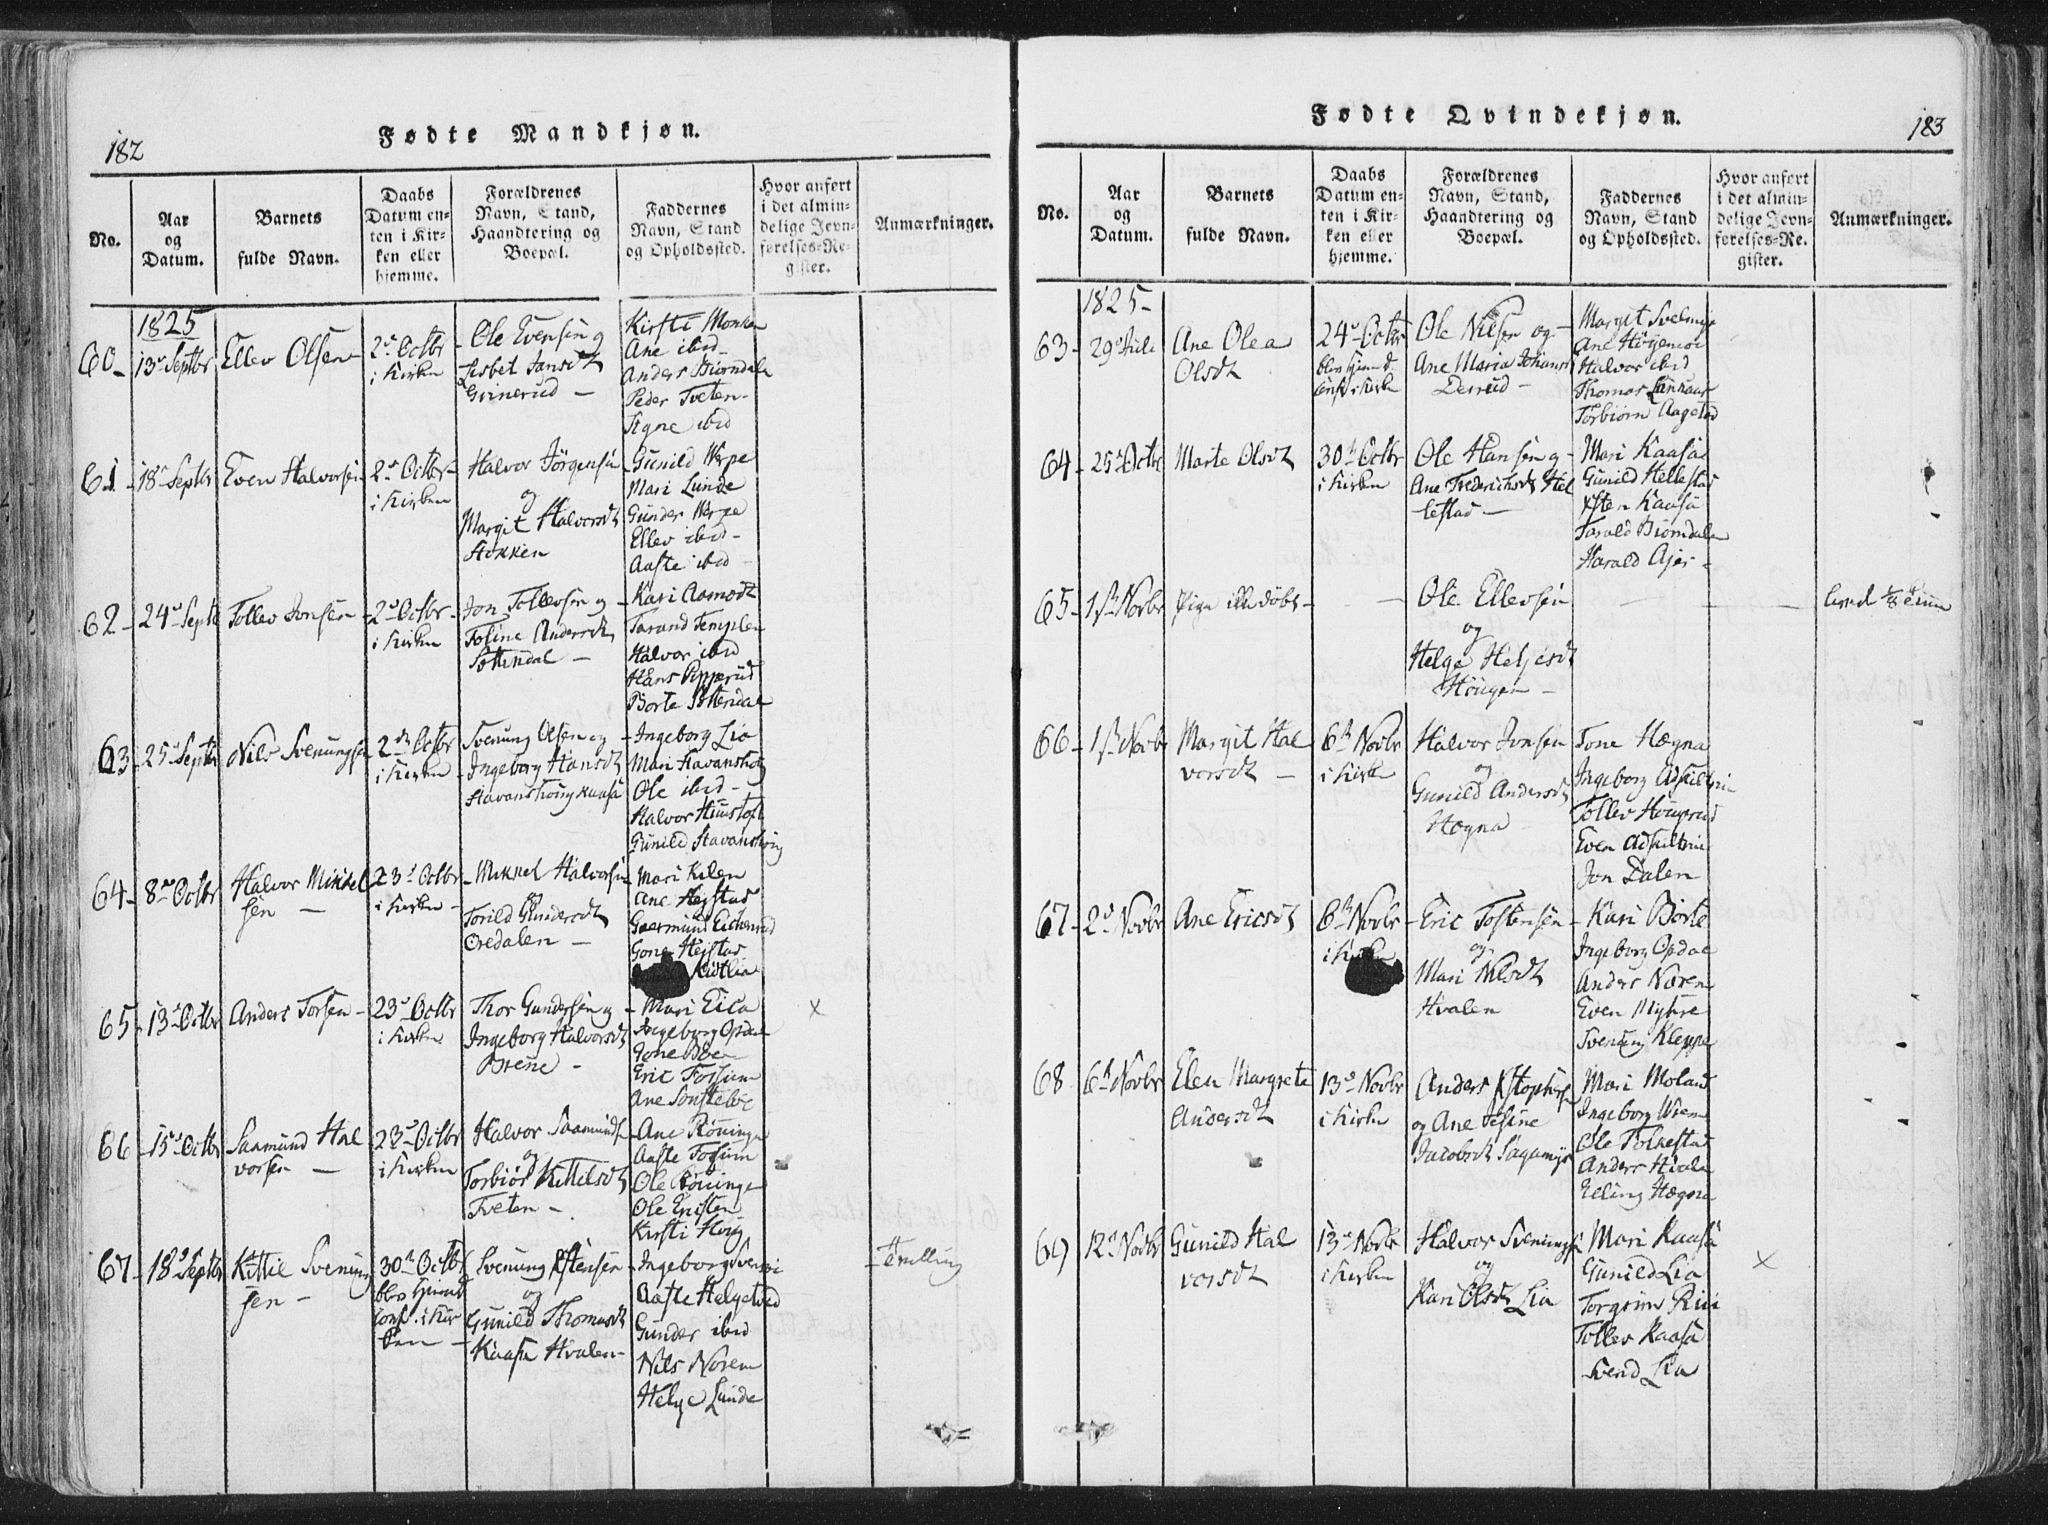 182
Fødte Mandkjøn.
No.
Aar
og
Datum.
Barnets
fulde Navn.
Daabs
Datum en-
ten i Kir-
ken eller
hjemme.
Forældrenes
Navn, Stand,
Haandtering og
Boepæl.
Faddernes
Navn, Stand
og Opholdssted.
Hvor anført
i det almin-
delige Jevn-
førelses-Re-
gister.
Anmærkninger.
1825
60
13de Septbr
Ellev Olsen
2de Octbr
i Kirken
Ole Evensen og
Lisbet Jansdt
Grinerud
Kirsti Monken
Ane ibid
Anders Biørndale
Peder Tveten
Signe ibid
61
18de Septbr
Even Halvorsen
2de Octbr
i Kirken
Halvor Jörgensen
og
Margit Halvorsdt
Stokken
Gunild Werpe
Mari Lunde
Gunder Werpe
Ellev ibid
Aaste ibid
62
24de Septb
Tollev Jonsen
2de Octbr
i Kirken
Jon Tollevsen og
Tosine Andersdt
Sottendal
Kari Aamodt
Tarand Templen
Halvor ibid
Hans Pipperud
Borte Sottendal
63
25de Septbr
Nils Svenungsen
2den Octbr
i Kirken
Svenung Olsen og
Ingeborg Hansdt
Stavanshøug kaasa
Ingeborg Lia
Mari Stavanshoug
Ole ibid
Halvor Himstoft
Gunild Stavanshoug
64
8de Octbr
Halvor Mikkel
sen
23de Octbr
i Kirken
Mikkel Halvorsen
og
Torild Gundersdt
Oredalen
Mari Kilen
Ane Hejstad
Gone Hejstad
65
13de Octbr
Anders Torsen
23de Octbr
i Kirken
Thor Gundersen og
Ingeborg Halvorsdt
Brene
Mari Eica
Ingeborg Opdal
Gone Boen
Eric Fossum
Ane Sonstebøe
×
66
15de Octbr
Saamund Hal
vorsen
23de Octbr
i Kirken
Halvor Saamunds
og
Torbiør Kittilsdt
Tveten
Ane Röninge
Aaste Fossum
Ole Röninge
Ole Enisten
Kirsti Houg
67
18de Septbr
Kittil Svenung
sen
30te Octbr
blev hiemd
conf. i Kir
ken
Svenung Østensen
og
Gunild Thomasdt
Kaasa Hvalen
Ingeborg
Aaste Helgetved
Gunder ibid
Nils Norem
Helge Lunde
Tvilling
183
Fødte Qvindekjøn.
No.
Aar
og
Datum.
Barnets
fulde Navn.
Daabs
Datum en-
ten i Kir-
ken eller
hjemme.
Forældrenes
Navn, Stand,
Haandtering og
Boepæl.
Faddernes
Navn, Stand
og Opholdssted.
Hvor anført
i det almin-
delige Jevn-
førelses-Re-
gister.
Anmærkninger.
1825
63
29de Juli
Ane Olea
Olsdt
24de Octbr
blev hiemd
conf. i Kirken
Ole Nilsen og
Ane Maria Johansd
Derrud
Margit Svelmyr
Ane Höijemoe
Halvor ibid
Thomas Lunkaas
Torbiørn Aagetad
64
25de Octbr
Marte Olsdt
30te Octbr
i Kirken
Ole Hansen og
Ane Frederichsdt Hel
lestad
Mari Kaasa
Gunild Hellestad
Østen Kaasa
Tarald Biørndalen
Harald Ajer
65
1ste Novbr
Pige ikke döbt
Ole Ellevsen
og
Helge Heljesdt
Höugen
66
1ste Novbr
Margit Hal
vorsdt
6te Novbr
i Kirken
Halvor Jonsen
og
Gunild Andersdt
Hægna
Tone Hægna
Ingeborg Adskiltrin
Tollev Hougerud
Even Adskiltrin
Jon Dalen
67
2de Novbr
Ane Ericsdt
6te Novbr
i Kirken
Eric Tostensen
og
Mari Nilsdt
Hvalen
Kari Borte
Ingeborg Opdal
Anders Norem
Even Myhre
Svenung Kleppe
68
6te Novbr
Elen Margrete
Andersdt
13de Novbr
i Kirken
Anders
og Ane Josine
Jacobsdt Sagamyr
Mari Moland
Ingeborg Wrem
Ole Folkestad
Anders Hvala
Elling Hægna
69
12te Novbr
Gunild Hal
vorsdt
13de Novbr
i Kirken
Halvor Svenungs
og
Kari Olsdt Lia
Mari Kaasa
Gunild Lia
Torgrim Rui
Tollev Kaasa
Svend Lia
×